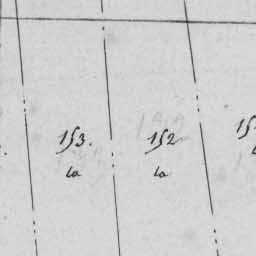 153. 152
la la